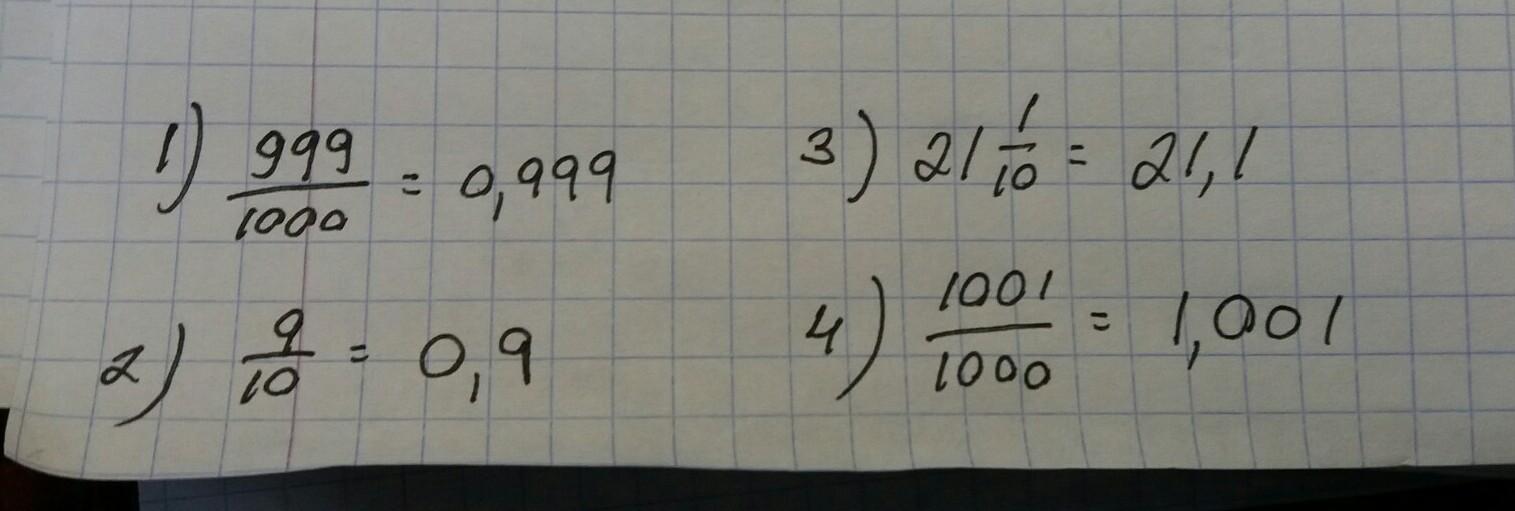 1) 999/1000 = 0,999
2) 9/10 = 0,9
3) 21 1/10 = 21,1
4) 1001/1000 = 1,001